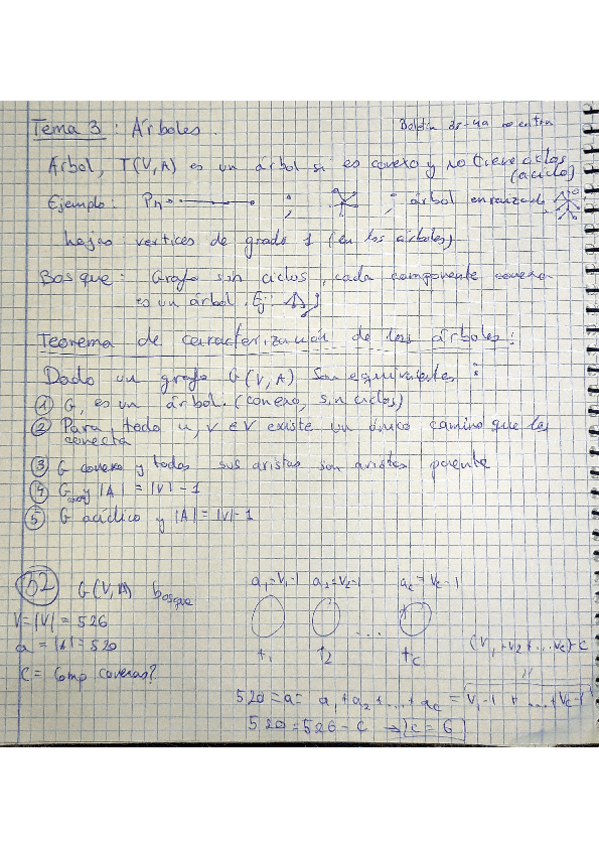 Tema 3 : Árboles.
Boletín 35-49 no entra
Árbol, T(V,A) es un árbol si es conexo y no tiene ciclos
(acíclico)
Ejemplo: Pn ; ; árbol enraizado
hojas: vertices de grado 1 (en los árboles)
Bosque: Grafo sin ciclos, cada componente conexa
es un árbol. Ej:
Teorema de caracterización de los árboles:
Dado un grafo G(V,A) son equivalentes:
① G, es un árbol. (conexo, sin ciclos)
② Para todo u,v ∈ V existe un único camino que los
conecta
③ G conexo y todas sus aristas son aristas puente
④ G conexo y |A| = |V| - 1
⑤ G acíclico y |A| = |V| - 1
52 G(V,A) bosque
a1=V1-1 a2=V2-1 ac=Vc-1
V=|V|=526
a=|A|=520
... (V1+V2+...Vc)-c
T1 T2 Tc
C= Comp conexas?
520=a= a1+a2+...+ac = V1-1+...+Vc-1
520=526-c → c=6